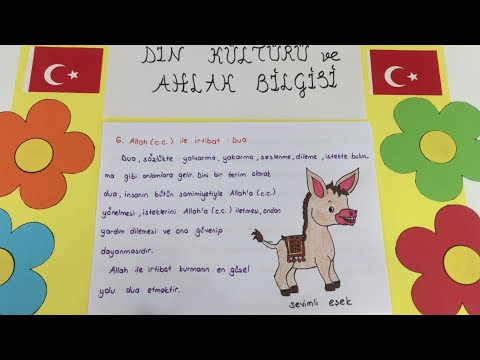 DİN KÜLTÜRÜ ve
AHLAK BİLGİSİ
6. Allah (c.c.) ile irtibat : Dua
Dua, sözlükte yalvarma, yakarma, seslenme, dileme, istekte bulun_
ma gibi anlamlara gelir. Dini bir terim olarak
dua, insanın bütün samimiyetiyle Allah'a (c.c.)
yönelmesi, isteklerini Allah'a (c.c.) iletmesi, ondan
yardım dilemesi ve ona güvenip
dayanmasıdır.
Allah ile irtibat kurmanın en güzel
yolu dua etmektir.
sevimli eşek